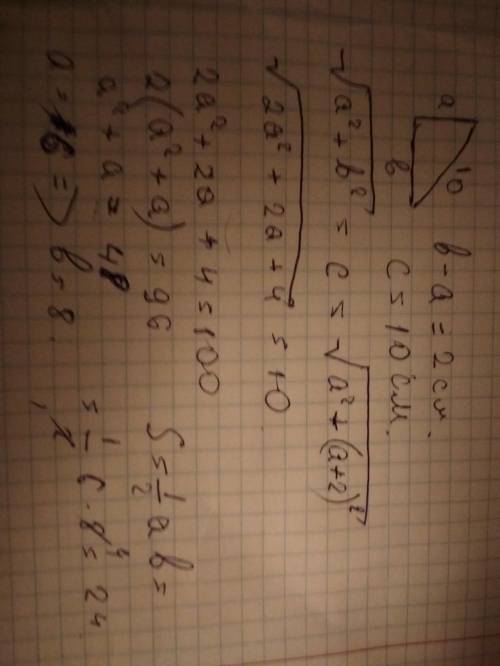 a
10
в
в - a = 2 см.
c = 10 см.
√(a² + в²) = c = √(a² + (a+2)²)
√(2a² + 2a + 4) = 10
2a² + 2a + 4 = 100
2(a² + a) = 96
a² + a = 48
a = 6 => в = 8.
S = 1/2 a в =
= 1/2 6 · 8 4 = 24